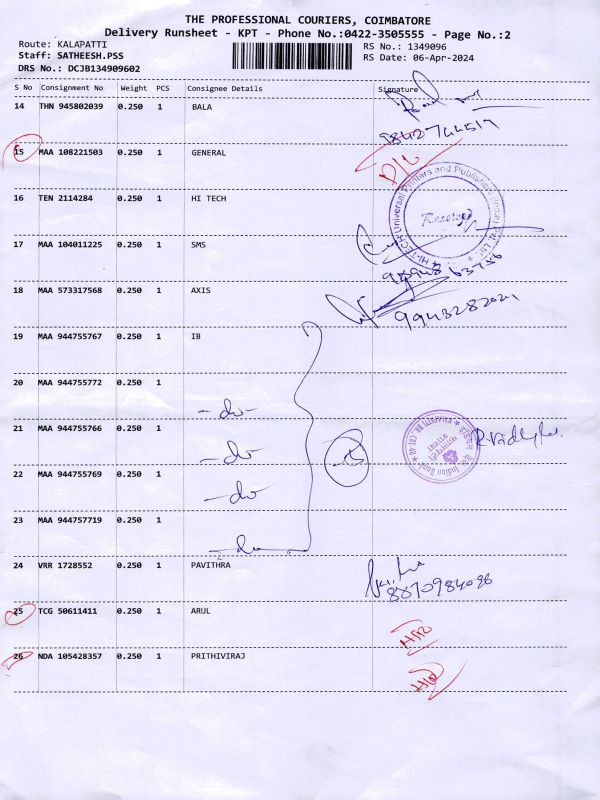 THE PROFESSIONAL COURIERS, COIMBATORE
Delivery Runsheet - KPT - Phone No.:0422-3505555 - Page No.:2
Route: KALAPATTI
RS No.: 1349096
Staff: SATHEESH.PSS
RS Date: 06-Apr-2024
DRS No.: DCJB134909602
S No Consignment No Weight PCS Consignee Details Signature
14 THN 945802039 0.250 1 BALA
15 MAA 108221503 0.250 1 GENERAL
16 TEN 2114284 0.250 1 HI TECH
HI-TECH Universal Printers and Publishers (India) Pvt. Ltd.
Received
17 MAA 104011225 0.250 1 SMS
18 MAA 573317568 0.250 1 AXIS
9943282021
19 MAA 944755767 0.250 1 IB
20 MAA 944755772 0.250 1
-do-
21 MAA 944755766 0.250 1
-do-
22 MAA 944755769 0.250 1
-do-
23 MAA 944757719 0.250 1
-do-
5
Indian Bank
24 VRR 1728552 0.250 1 PAVITHRA
8870984096
25 TCG 50611411 0.250 1 ARUL
26 NDA 105428357 0.250 1 PRITHIVIRAJ